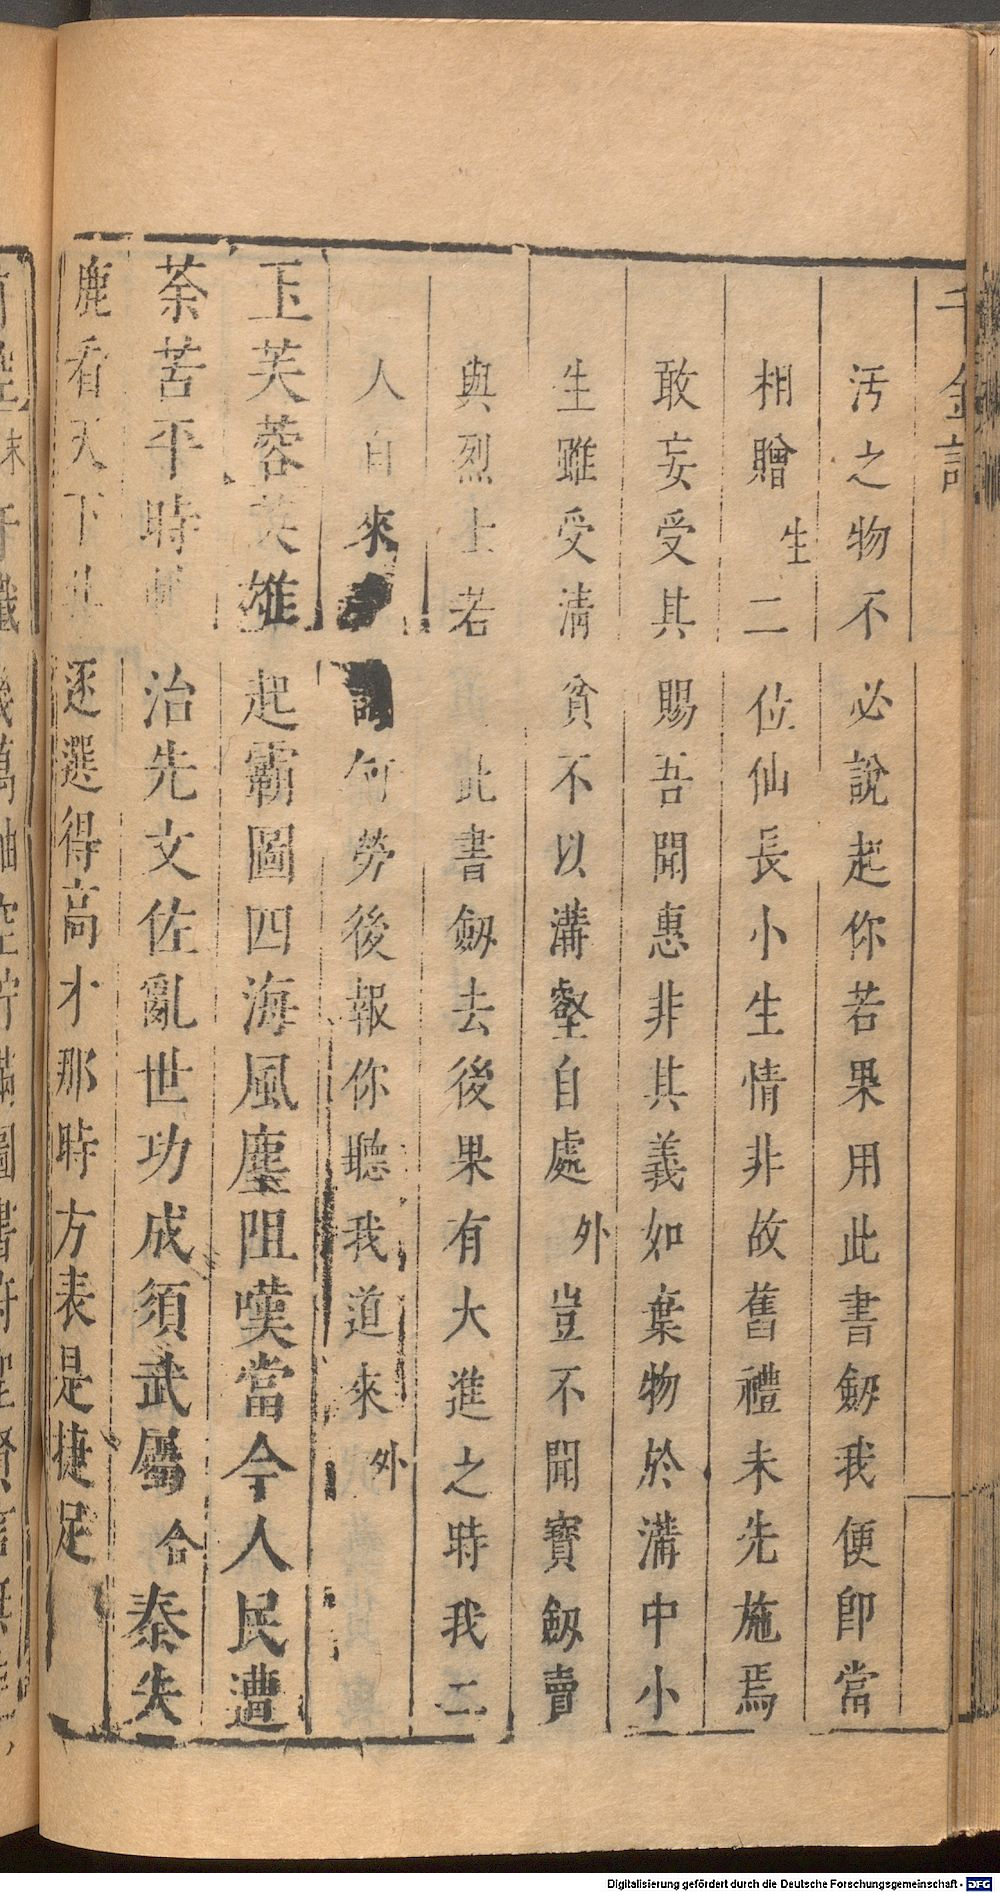 千金記
汚之物不必說起你若果用此書劔我便卽當
相贈生二位仙長小生情非故舊禮未先施焉
敢妄受其賜吾聞惠非其義如棄物於溝中小
生雖受淸貧不以溝壑自處外豈不聞寶劔賣
與烈士若此書劔去後果有大進之時我二
人自來何勞後報你聽我道來外
玉芙蓉英雄起霸圖四海風塵阻嘆當今人民遭
荼苦平時治先文佐亂世功成須武屬合秦失
鹿看天下逐選得高才那時方表是捷足
Digitalisierung gefördert durch die Deutsche Forschungsgemeinschaft - DFG